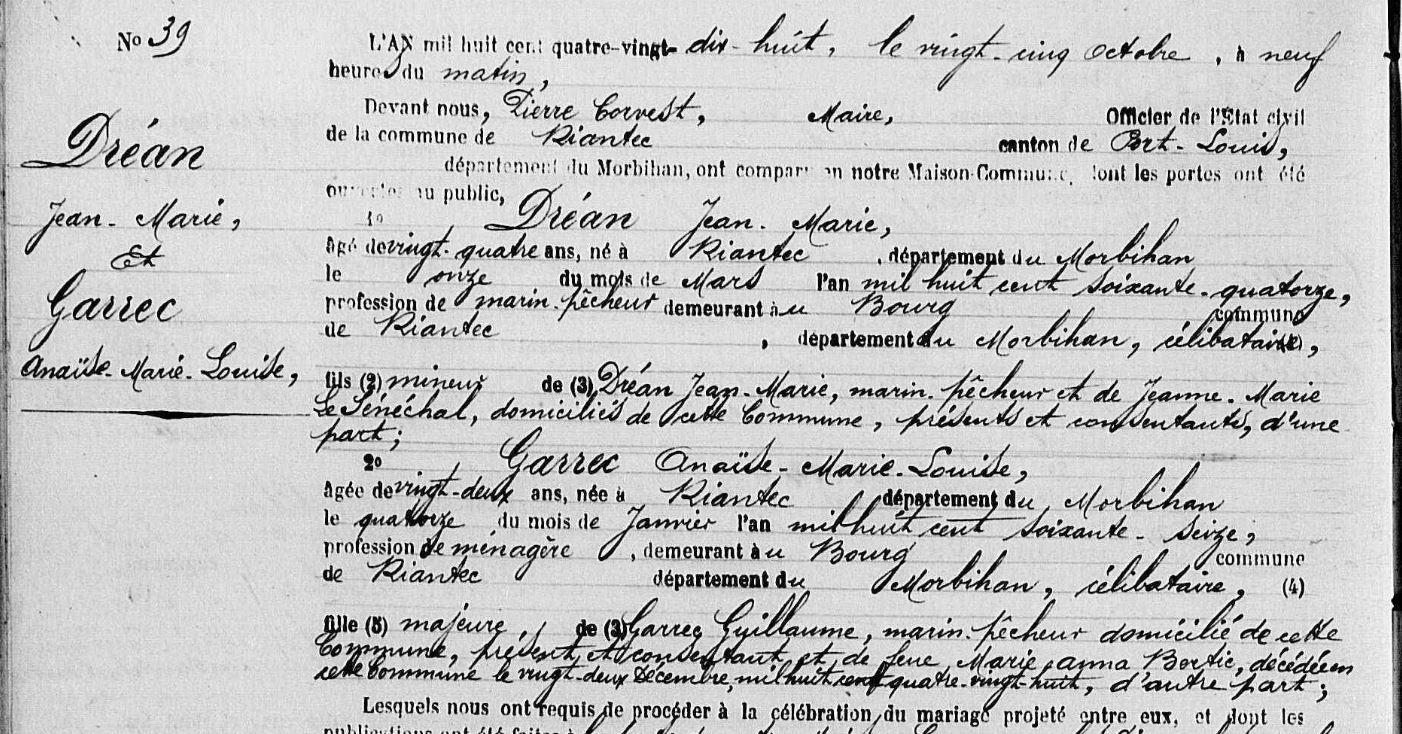 No 39
Dréan
Jean-Marie,
Et
Garrec
Anaïse-Marie-Louise,
L'AN mil huit cent quatre-vingt-dix-huit, le vingt-cinq Octobre, à neuf
heures du matin,
Devant nous, Pierre Corvest, Maire, Officier de l'État civil
de la commune de Riantec canton de Port-Louis,
département du Morbihan, ont comparu en notre Maison-Commune, dont les portes ont été
ouvertes au public,
1o Dréan Jean-Marie,
âgé de vingt-quatre ans, né à Riantec, département du Morbihan
le onze du mois de Mars l'an mil huit cent soixante-quatorze,
profession de marin-pêcheur demeurant au Bourg commune
de Riantec, département du Morbihan, célibataire,
fils (2) mineur de (3) Dréan Jean-Marie, marin-pêcheur et de Jeanne-Marie
Le Sénéchal, domiciliés de cette Commune, présents et consentants, d'une
part;
2o Garrec Anaïse-Marie-Louise,
âgée de vingt-deux ans, née à Riantec département du Morbihan
le quatorze du mois de Janvier l'an mil huit cent soixante-seize,
profession de ménagère, demeurant au Bourg commune
de Riantec département du Morbihan, célibataire, (4)
fille (5) majeure, de (3) Garrec Guillaume, marin-pêcheur domicilié de cette
Commune, présent et consentant et de feue Marie anna Bertic, décédée en
cette Commune le vingt-deux Décembre mil huit cent quatre-vingt-huit, d'autre part;
Lesquels nous ont requis de procéder à la célébration du mariage projeté entre eux, et dont les
publications ont été faites à